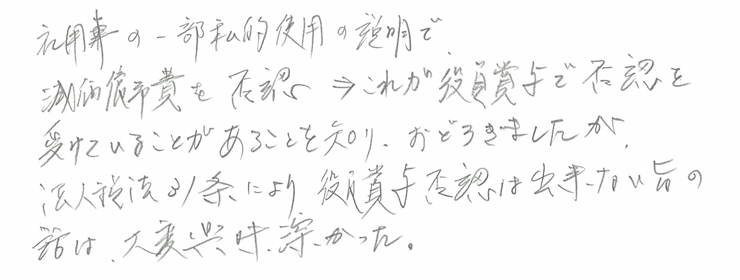 社用車の一部私的使用の説明で
減価償却費を否認⇒これが役員賞与で否認を
受けていることがあることを知り、おどろきましたが、
法人税法31条により役員賞与否認は出来ない旨の
話は、大変興味深かった。